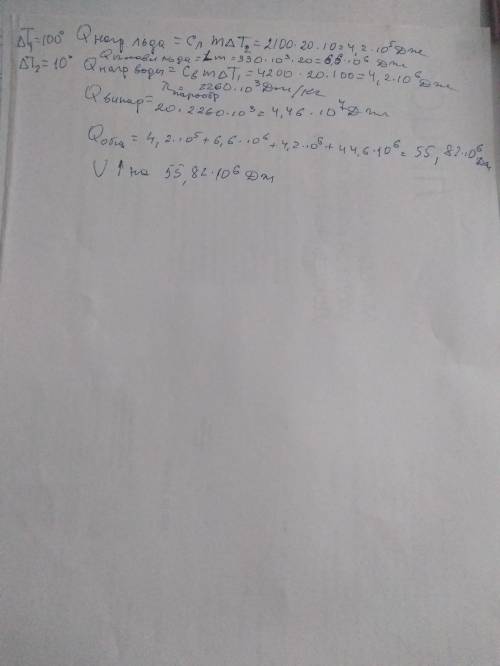 ΔT₁=100° Q нагр льда = Cл m ΔT₂ = 2100·20·10 = 4,2·10⁵ Дж
Q плавл льда = Lm = 330·10³·20 = 6,6·10⁶ Дж
ΔT₂=10° Q нагр воды = Cв m ΔT₁ = 4200·20·100 = 4,2·10⁶ Дж
парообр = 2260·10³ Дж/кг
Q выпар = 20·2260·10³ = 4,46·10⁷ Дж
Q общ = 4,2·10⁵ + 6,6·10⁶ + 4,2·10⁶ + 44,6·10⁶ = 55,82·10⁶ Дж
U ↑ на 55,82·10⁶ Дж